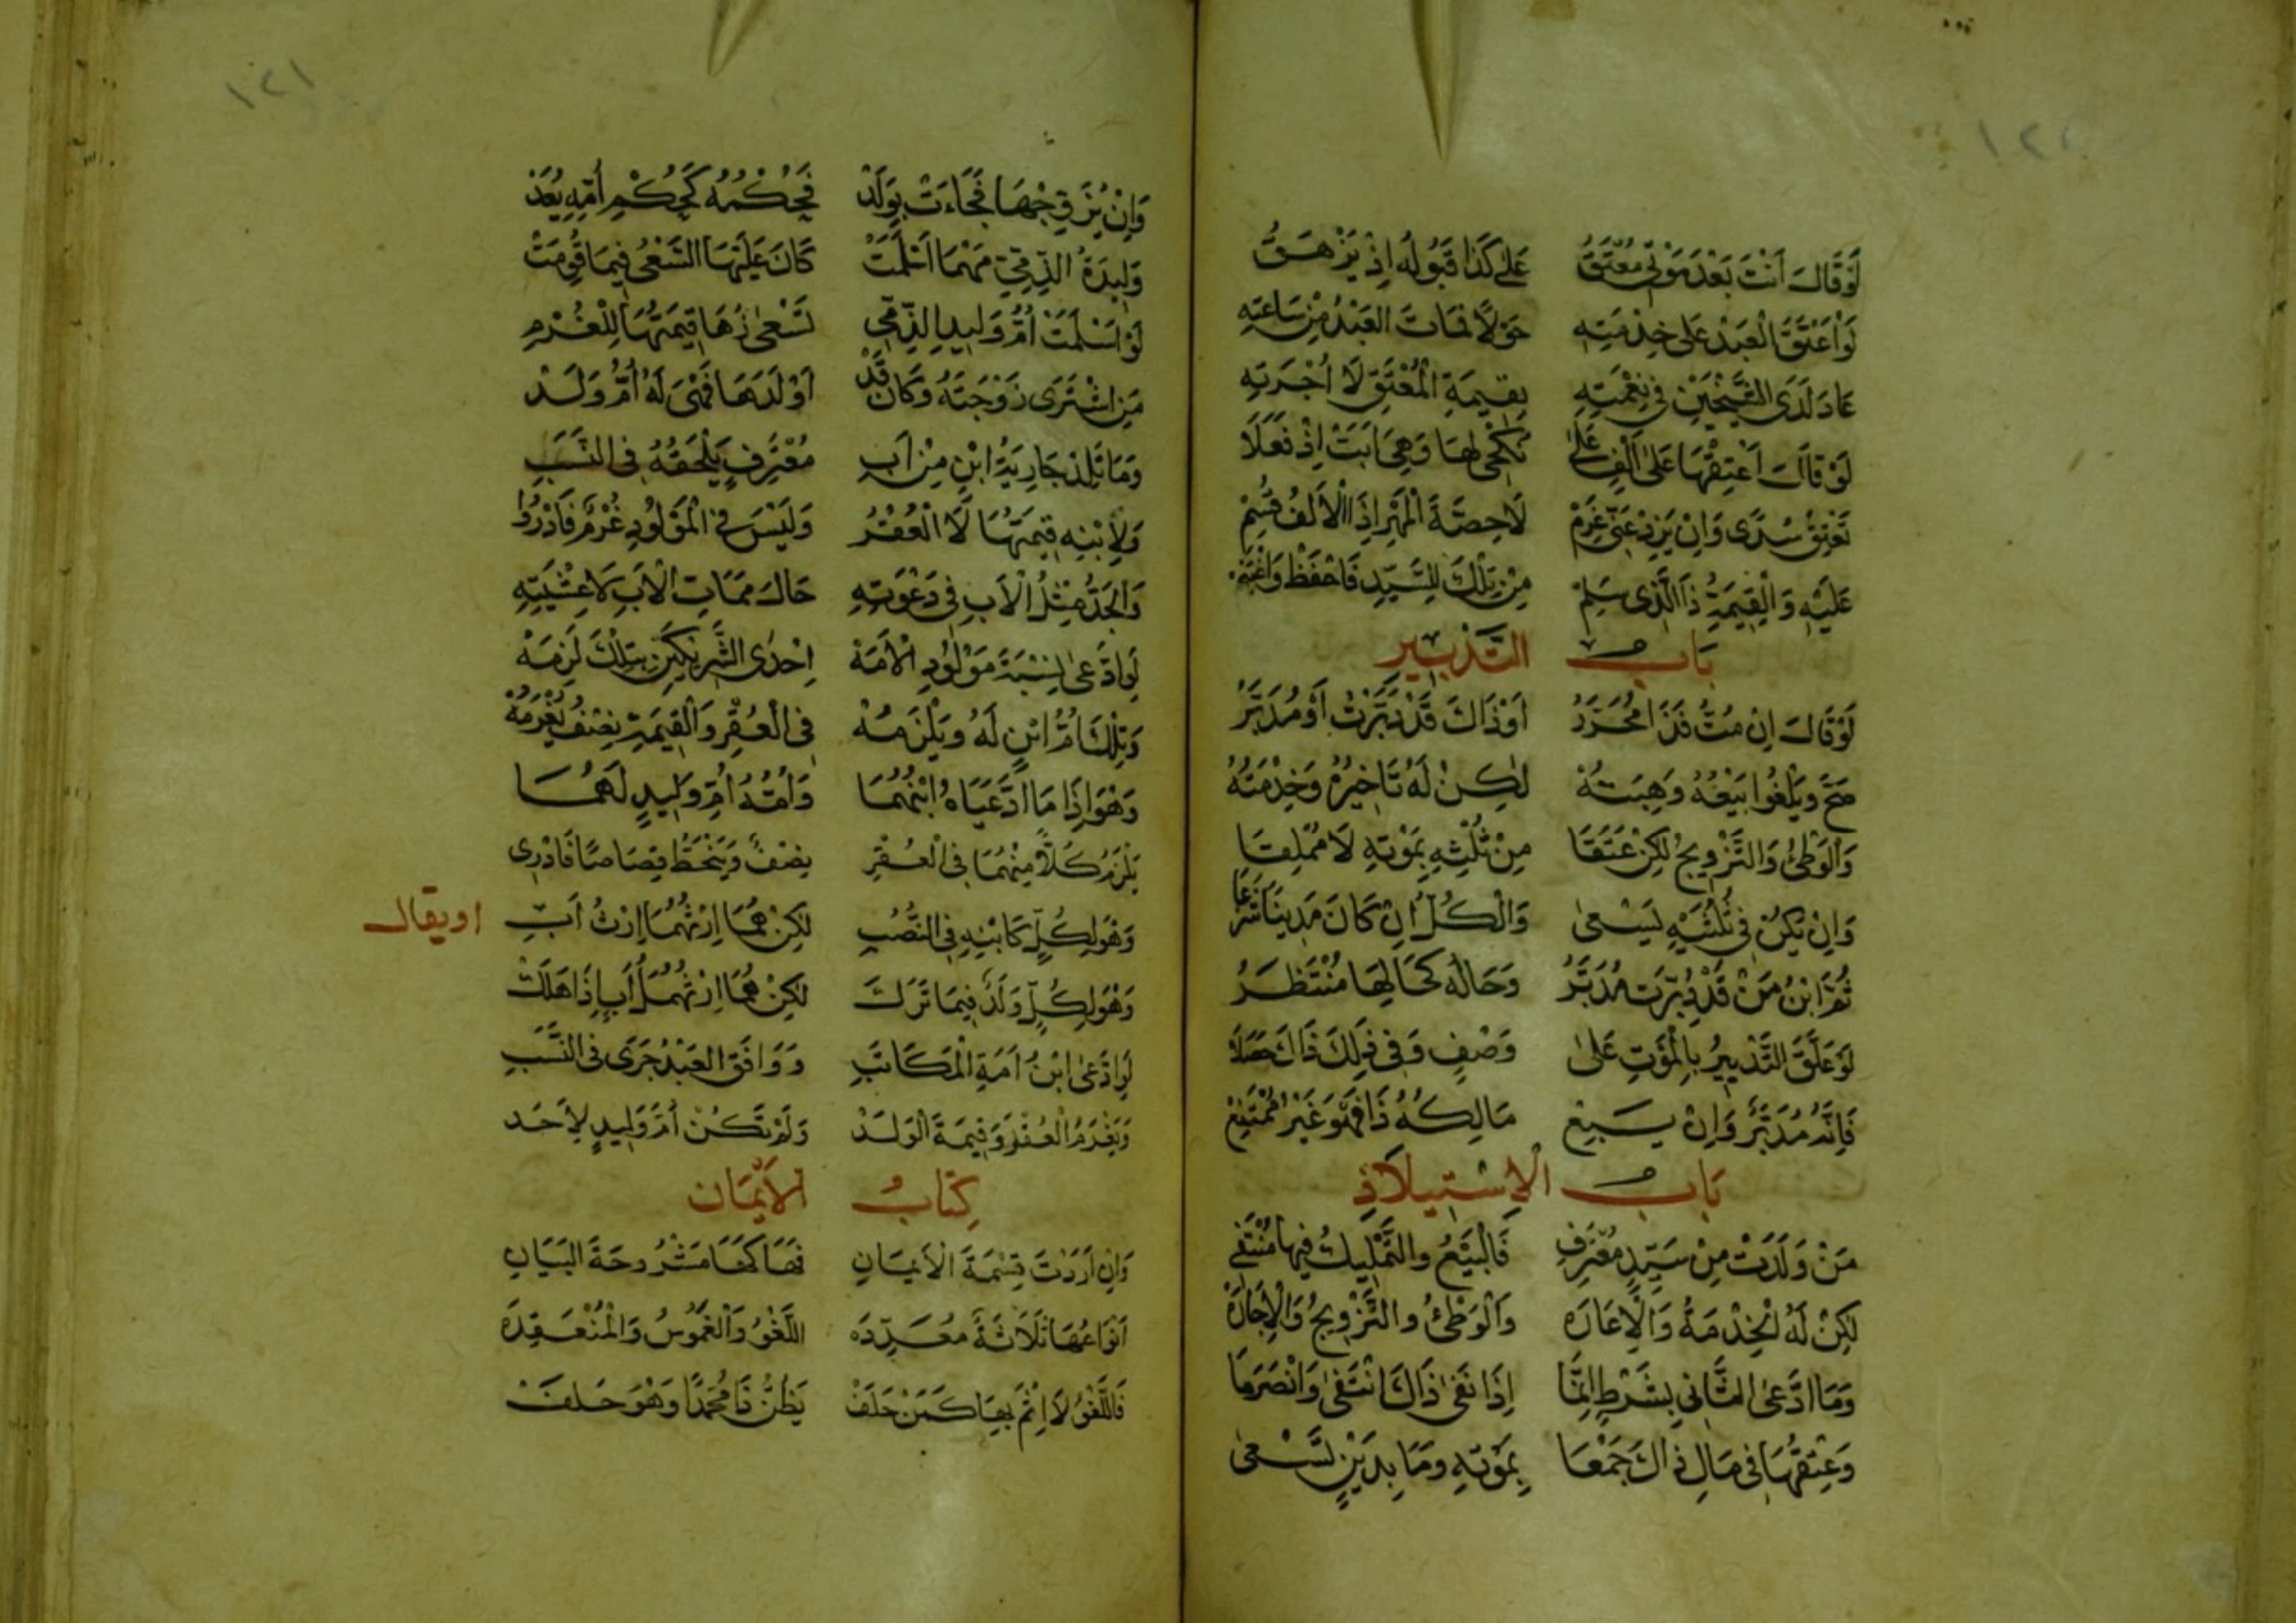 ١٢٠
لَوْ قَالَ أَنْتَ بَعْدَ مَوْتِي مُعْتَقُ عَلَى كَذَا قَبُولُهُ إِذْ يَزْهَقُ
لَوْ أَعْتَقَ الْعَبْدَ عَلَى خِدْمَتِهِ حَوْلًا فَمَاتَ الْعَبْدُ مِنْ سَاعَتِهِ
عَادَ لَدَى الشَّيْخَيْنِ فِي نِعْمَتِهِ بِقِيمَةِ الْمُعْتَقِ لَا أُجْرَتِهِ
لَوْ قَالَ أَعْتِقْهَا عَلَى أَلْفٍ عَلَى نُكْحِي لَهَا وَهِيَ أَبَتْ إِذْ فَعَلَا
تَعْتِقْ سُدًى وَإِنْ يَزِدْ عَنِّي غَرِمْ لَا حِصَّةَ الْمَهْرِ إِذَا الْأَلْفُ قُسِمْ
عَلَيْهِ وَالْقِيمَةِ ذَا الَّذِي سَلِمْ مِنْ تِلْكَ لِلسَّيِّدِ فَاحْفَظْ وَاغْتَنِمْ
بَابُ التَّدْبِيرِ
لَوْ قَالَ إِنْ مُتُّ فَذَا مُحَرَّرُ أَوْ ذَاكَ قَدْ دَبَّرْتُ أَوْ مُدَبَّرُ
صَحَّ وَيَلْغُو بَيْعُهُ وَهِبَتُهْ لَكِنْ لَهُ تَأْخِيرُهُ وَخِدْمَتُهْ
وَالْوَطْئُ وَالتَّزْوِيجُ لَكِنْ عَتَقَا مِنْ ثُلْثِهِ بِمَوْتِهِ لَا مُمْلِقَا
وَإِنْ يَكُنْ فِي ثُلْثَيْهِ يَسْعَى وَالْكُلِّ إِنْ كَانَ مَدِينًا شَرْعَا
ثُمَّ ابْنُ مَنْ قَدْ دُبِّرَتْ مُدَبَّرُ وَحَالُهُ كَحَالِهَا مُنْتَظَرُ
لَوْ عَلَّقَ التَّدْبِيرَ بِالْمَوْتِ عَلَى وَصْفٍ وَفِي ذَلِكَ ذَاكَ حَصَلَا
فَإِنَّهُ مُدَبَّرٌ وَإِنْ يَبِعْ مَالِكُهُ ذَا فَهُوَ غَيْرُ مُمْتَنِعْ
بَابُ الْإِسْتِيلَادِ
مَنْ وَلَدَتْ مِنْ سَيِّدٍ مُعْتَرِفِ فَالْبَيْعُ وَالتَّمْلِيكُ فِيهَا مُنْتَفِي
لَكِنْ لَهُ الْخِدْمَةُ وَالْإِعَارَهْ وَالْوَطْئُ وَالتَّزْوِيجُ وَالْإِجَارَهْ
وَمَا ادَّعَى الثَّانِي بِشَرْطٍ إِنَّمَا إِذَا نَفَى ذَاكَ انْتَفَى وَانْصَرَمَا
وَعِتْقُهَا فِي مَالِ ذَاكَ جَمْعَا بِمَوْتِهِ وَمَا بِدَيْنٍ تَسْعَى
١٢١
وَإِنْ يُزَوِّجْهَا فَجَاءَتْ بِوَلَدْ فَحُكْمُهُ كَحُكْمِ أُمِّهِ يُعَدْ
وَلِيدَةُ الذِّمِّيِّ مَهْمَا أَسْلَمَتْ كَانَ عَلَيْهَا السَّعْيُ فِيمَا قُوِّمَتْ
لَوْ أَسْلَمَتْ أُمُّ وَلِيدِ الذِّمِّي تَسْعَى لَهُ قِيمَتَهَا لِلْغُرْمِ
مَنِ اشْتَرَى زَوْجَتَهُ وَكَانَ قَدْ أَوْلَدَهَا فَهْيَ لَهُ أُمُّ وَلَدْ
وَمَا تَلِدْ جَارِيَةُ ابْنٍ مِنْ أَبِ مُعْتَرِفٍ يَلْحَقُهُ فِي النَّسَبِ
وَلِابْنِهِ قِيمَتُهَا لَا الْعُقْرُ وَلَيْسَ فِي الْمَوْلُودِ غُرْمٌ فَادْرُوا
وَالْجَدُّ مِثْلُ الْأَبِ فِي دَعْوَتِهِ حَالَ مَمَاتِ الْأَبِ لَا عِيشَتِهِ
لَوِ ادَّعَى نِسْبَةَ مَوْلُودِ الْأَمَهْ إِحْدَى الشَّرِيكَيْنِ بِتِلْكَ لَزِمَهْ
وَتِلْكَ أُمُّ ابْنٍ لَهُ وَيَلْزَمُهْ فِي الْعُقْرِ وَالْقِيمَةِ نِصْفٌ يُغْرَمُهْ
وَهْوَ إِذَا مَا ادَّعَيَاهُ ابْنُهُمَا وَأُمُّهُ أُمُّ وَلِيدٍ لَهُمَا
يَلْزَمُ كُلًّا مِنْهُمَا فِي الْعُقْرِ نِصْفٌ وَيَنْحَطُّ قِصَاصًا فَادْرِي
وَهْوَ لِكُلٍّ كَابْنِهِ فِي النُّصُبِ لَكِنْ هُمَا إِرْثُهُمَا إِرْثُ أَبِ
اويقال
وَهْوَ لِكُلٍّ وَلَدٌ فِيمَا تَرَكَ لَكِنْ هُمَا إِرْثُهُمَا أَبٍ إِذَا هَلَكْ
لَوِ ادَّعَى ابْنَ أَمَةِ الْمُكَاتَبِ وَوَافَقَ الْعَبْدُ جَرَى فِي النَّسَبِ
وَيَغْرَمُ الْعُقْرَ وَقِيمَةَ الْوَلَدْ وَلَمْ تَكُنْ أُمَّ وَلِيدٍ لِأَحَدْ
كِتَابُ الْأَيْمَانِ
وَإِنْ أَرَدْتَ قِسْمَةَ الْأَيْمَانِ فَهَاكَهَا مَشْرُوحَةَ الْبَيَانِ
أَنْوَاعُهَا ثَلَاثَةٌ مُعَدَّدَهْ اللَّغْوُ وَالْغَمُوسُ وَالْمُنْعَقِدَهْ
فَاللَّغْوُ لَا إِثْمَ بِهَا كَمَنْ حَلَفْ يَظُنُّ ذَا مُحَمَّدًا وَهْوَ خَلَفْ